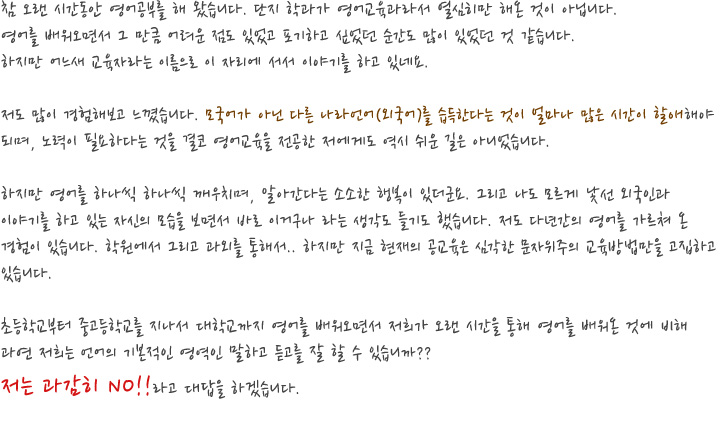 참 오랜 시간동안 영어공부를 해 왔습니다. 단지 학과가 영어교육과라서 열심히만 해온 것이 아닙니다.
영어를 배워오면서 그 만큼 어려운 점도 있었고 포기하고 싶었던 순간도 많이 있었던 것 같습니다.
하지만 어느새 교육자라는 이름으로 이 자리에 서서 이야기를 하고 있네요.
저도 많이 경험해보고 느꼈습니다. 모국어가 아닌 다른 나라언어(외국어)를 습득한다는 것이 얼마나 많은 시간이 할애해야
되며, 노력이 필요하다는 것을 결코 영어교육을 전공한 저에게도 역시 쉬운 길은 아니었습니다.
하지만 영어를 하나씩 하나씩 깨우치며, 알아간다는 소소한 행복이 있더군요. 그리고 나도 모르게 낯선 외국인과
이야기를 하고 있는 자신의 모습을 보면서 바로 이거구나 라는 생각도 들기도 했습니다. 저도 다년간의 영어를 가르쳐 온
경험이 있습니다. 학원에서 그리고 과외를 통해서.. 하지만 지금 현재의 공교육은 심각한 문자위주의 교육방법만을 고집하고
있습니다.
초등학교부터 중고등학교를 지나서 대학교까지 영어를 배워오면서 저희가 오랜 시간을 통해 영어를 배워온 것에 비해
과연 저희는 언어의 기본적인 영역인 말하고 듣고를 잘 할 수 있습니까??
저는 과감히 NO!!라고 대답을 하겠습니다.